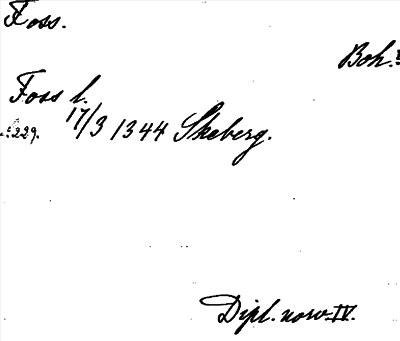 Foss.
Boh.
Foss l.
s. 229. 17/3 1344 Skeberg.
Dipl. norv. IV.